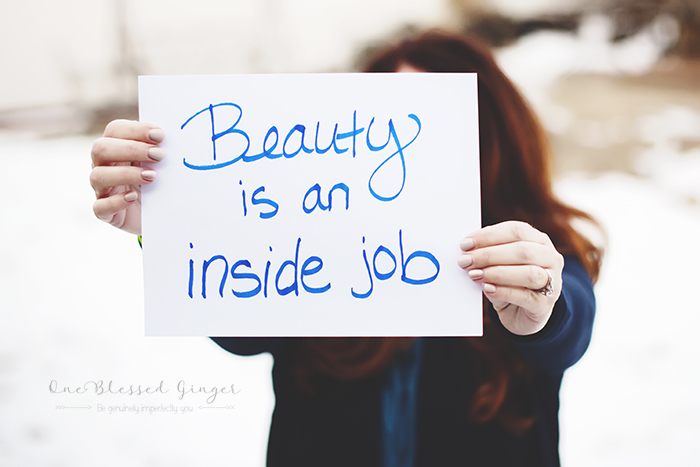 Beauty
is an
inside job
OneBlessed Ginger
Be genuinely imperfectly you